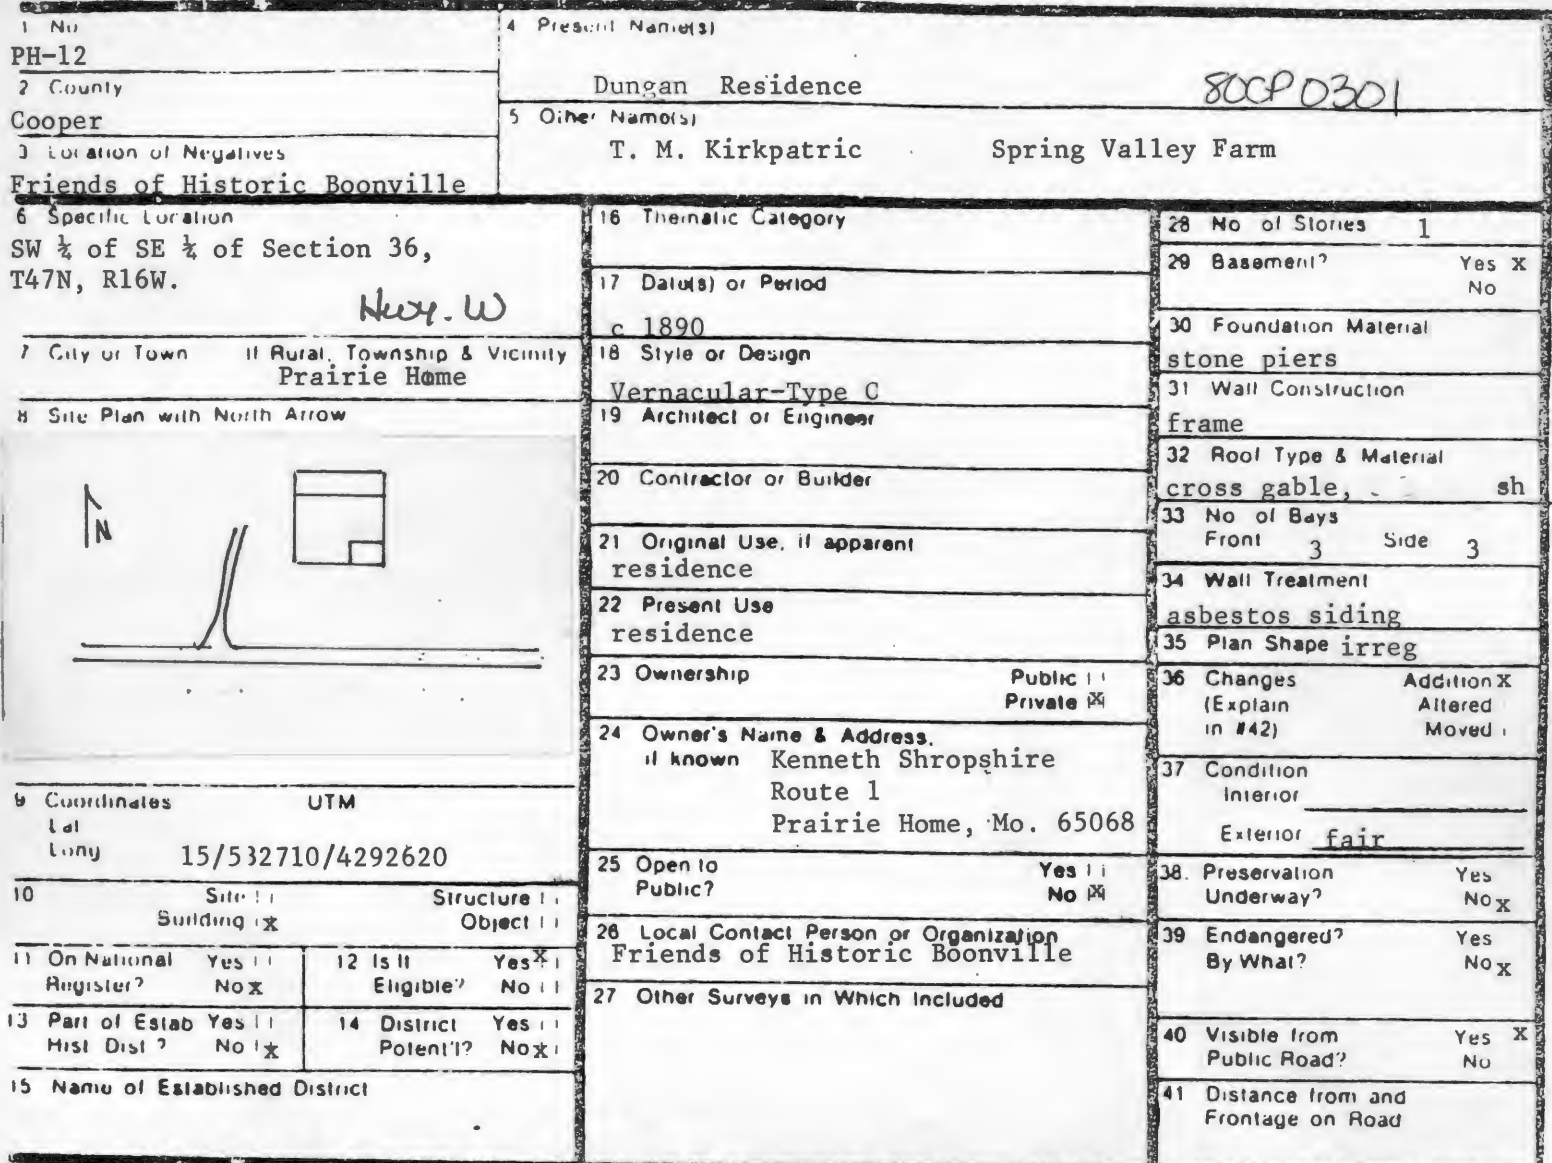 1 No
PH-12
2 County
Cooper
3 Location of Negatives
Friends of Historic Boonville
4 Present Name(s)
Dungan Residence
80CP0301
5 Other Name(s)
T. M. Kirkpatric Spring Valley Farm
6 Specific Location
SW ¼ of SE ¼ of Section 36,
T47N, R16W.
Hwy. W
7 City or Town If Rural, Township & Vicinity
Prairie Home
8 Site Plan with North Arrow
N
9 Coordinates UTM
Lat
Long 15/532710/4292620
10 Site Structure
Building x Object
11 On National Yes
Register? No x
12 Is It Yes X
Eligible? No
13 Part of Estab Yes
Hist Dist ? No x
14 District Yes
Potent'l? No x
15 Name of Established District
16 Thematic Category
17 Date(s) or Period
c 1890
18 Style or Design
Vernacular-Type C
19 Architect or Engineer
20 Contractor or Builder
21 Original Use, if apparent
residence
22 Present Use
residence
23 Ownership Public
Private X
24 Owner's Name & Address,
if known Kenneth Shropshire
Route 1
Prairie Home, Mo. 65068
25 Open to Yes
Public? No X
26 Local Contact Person or Organization
Friends of Historic Boonville
27 Other Surveys in Which Included
28 No of Stories 1
29 Basement? Yes X
No
30 Foundation Material
stone piers
31 Wall Construction
frame
32 Roof Type & Material
cross gable, sh
33 No of Bays
Front 3 Side 3
34 Wall Treatment
asbestos siding
35 Plan Shape irreg
36 Changes Addition X
(Explain Altered
in #42) Moved
37 Condition
Interior
Exterior fair
38. Preservation Yes
Underway? No x
39 Endangered? Yes
By What? No x
40 Visible from Yes X
Public Road? No
41 Distance from and
Frontage on Road